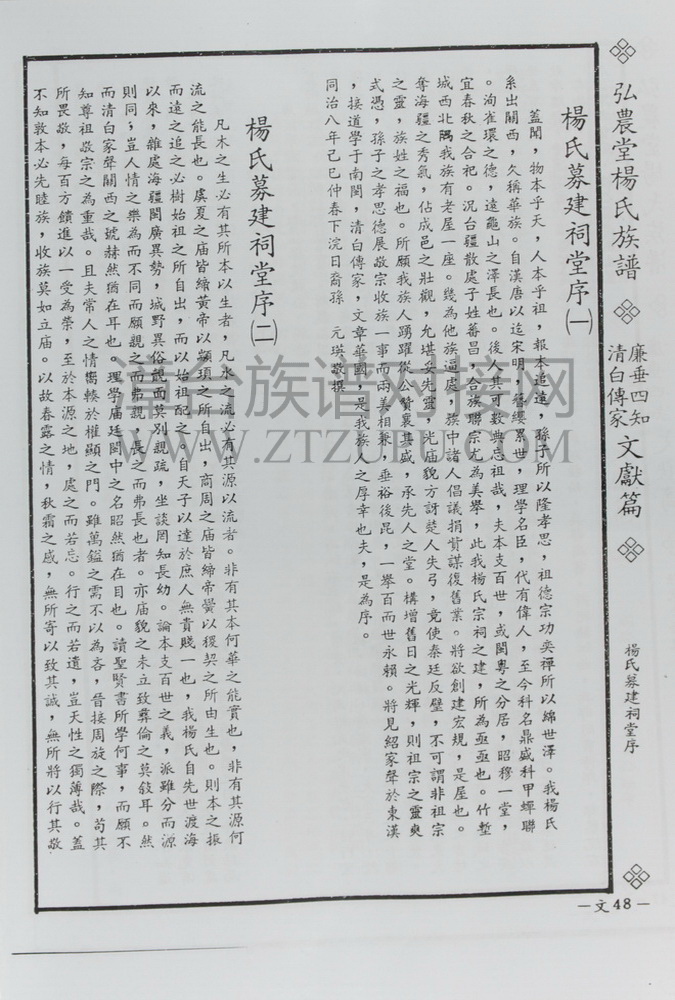 弘農堂楊氏族譜
廉垂四知
清白傳家
文獻篇
楊氏募建祠堂序
—文48—
楊氏募建祠堂序㈠
蓋聞，物本乎天，人本乎祖，報本追遠，孫子所以隆孝思，祖德宗功奕禪所以綿世澤。我楊氏
系出關西，久稱華族。自漢唐以迄宋明，簪纓累世，理學名臣，代有偉人，至今科名鼎盛科甲蟬聯
。洵雀環之德，遠龜山之澤長也。後人其可數典忘祖哉，夫本支百世，或閩粵之分居，昭穆一堂，
宜春秋之合祀。況台疆散處子姓蕃昌，合族聯宗尤為美舉，此我楊氏宗祠之建，所為亟亟也。竹塹
城西北隅我族有老屋一座。幾為他族逼處，族中諸人倡議捐貲謀復舊業。將欲創建宏規，是屋也。
奪海疆之秀氣，佔成邑之壯觀，允堪妥先靈，光庙貌方訝楚人失弓，竟使秦廷反璧，不可謂非祖宗
之靈，族姓之福也。所願我族人踴躍從公贊襄其盛，承先人之堂。構增舊日之光輝，則祖宗之靈爽
式憑，孫子之孝思德展敬宗收族一事而兩美相兼，垂裕後昆，一舉百而世永賴。將見紹家聲於東漢
，接道學于南閩，清白傳家，文章華國，是我族人之厚幸也夫，是為序。
同治八年己巳仲春下浣日裔孫 元瑛敬撰
楊氏募建祠堂序㈡
凡木之生必有其所本以生者，凡水之流必有其源以流者。非有其本何華之能實也，非有其源何
流之能長也。虞夏之庙皆締黃帝以顓頊之所自出，商周之庙皆締帝嚳以稷契之所由生也。則本之振
而遠之追之必樹始祖之所自出，而以始祖配之。自天子以達於庶人無貴賤一也，我楊氏自先世渡海
以來，雜處海疆閩廣異勢，城野異俗覿面莫別親疏，坐談罔知長幼。論本支百世之義，派雖分而源
則同；豈人情之樂為而不同而願親之而弗親，長之而弗長也者。亦庙貌之未立致彝倫之莫敍耳。然
而清白家聲關西之號赫然猶在耳也。理學庙廷閩中之名昭然猶在目也。讀聖賢書所學何事，而願不
知尊祖敬宗之為重哉。且夫常人之情嚮轃於權顯之門。雖萬鎰之需不以為吝，晉接周旋之際，苟其
所畏敬，每百方饋進以一受為榮，至於本源之地，處之而若忘。行之而若遺，豈天性之獨薄哉。蓋
不知敦本必先睦族，收族莫如立庙。以故春露之情，秋霜之感，無所寄以致其誠，無所將以行其敬
漳台族谱对接网
WWW.ZTZUPU.COM